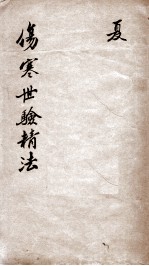 夏
傷寒世驗精法